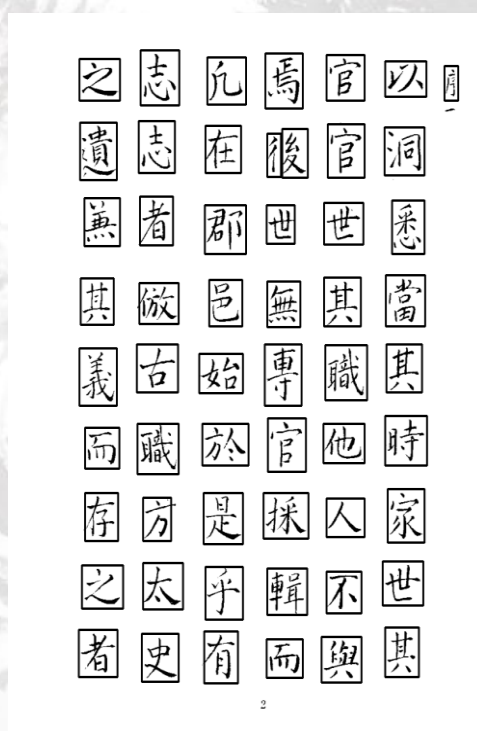 序一
以洞悉當其時家世其
官官世其職他人不與
焉後世無專官採輯而
凢在郡邑始於是乎有
志志者倣古職方太史
之遺兼其義而存之者
2